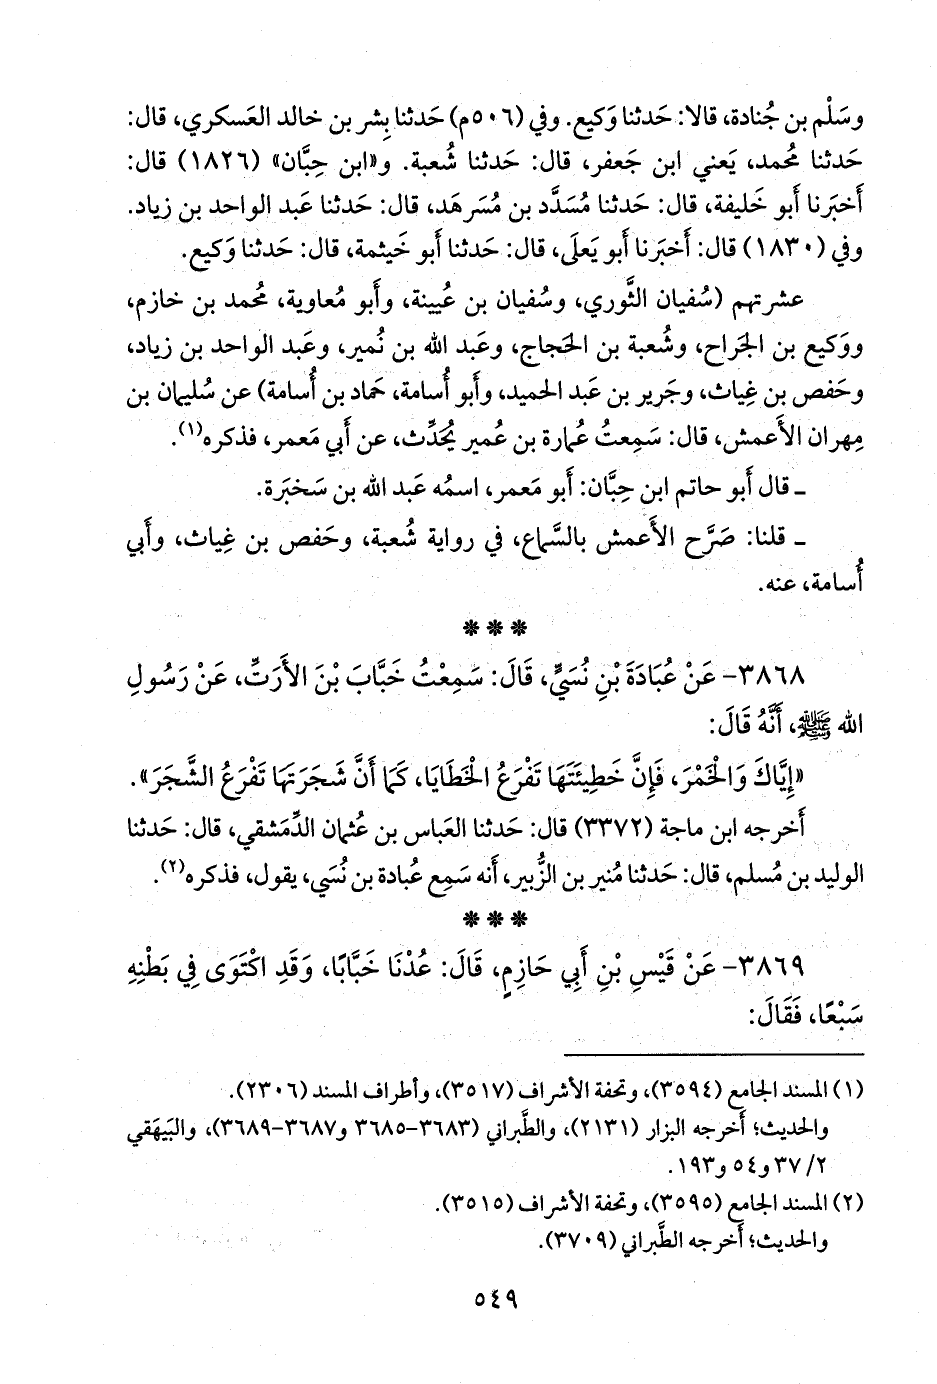 وسَلْم بن جُنادة، قالا: حَدثنا وَكيع. وفي (٥٠٦م) حَدثنا بِشر بن خالد العَسكري، قال:
حَدثنا مُحمد، يَعني ابن جَعفر، قال: حَدثنا شُعبة. و«ابن حِبَّان» (١٨٢٦) قال:
أَخبَرنا أَبو خَليفة، قال: حَدثنا مُسَدَّد بن مُسَرهَد، قال: حَدثنا عَبد الواحد بن زياد.
وفي (١٨٣٠) قال: أَخبَرنا أَبو يَعلَى، قال: حَدثنا أَبو خَيثمة، قال: حَدثنا وَكيع.
عشرتهم (سُفيان الثَّوري، وسُفيان بن عُيينة، وأَبو مُعاوية، مُحمد بن خازم،
ووَكيع بن الجَراح، وشُعبة بن الحَجاج، وعَبد الله بن نُمير، وعَبد الواحد بن زياد،
وحَفص بن غِياث، وجَرير بن عَبد الحَميد، وأَبو أُسامة، حَماد بن أُسامة) عن سُليمان بن
مِهران الأَعمش، قال: سَمِعتُ عُمارة بن عُمير يُحَدِّث، عن أَبي مَعمر، فذكره(١).
ـ قال أَبو حاتم ابن حِبَّان: أَبو مَعمر، اسمُه عَبد الله بن سَخبَرة.
ـ قلنا: صَرَّح الأَعمش بالسَّماع، في رواية شُعبة، وحَفص بن غِياث، وأَبي
أُسامة، عنه.
* * *
٣٨٦٨- عَنْ عُبَادَةَ بْنِ نُسَيٍّ، قَالَ: سَمِعْتُ خَبَّابَ بْنَ الأَرَتِّ، عَنْ رَسُولِ
الله ﷺ، أَنَّهُ قَالَ:
«إِيَّاكَ وَالْخَمْرَ، فَإِنَّ خَطِيئَتَهَا تَفْرَعُ الْخَطَايَا، كَمَا أَنَّ شَجَرَتهَا تَفْرَعُ الشَّجَرَ».
أَخرجه ابن ماجة (٣٣٧٢) قال: حَدثنا العَباس بن عُثمان الدِّمَشقي، قال: حَدثنا
الوليد بن مُسلم، قال: حَدثنا مُنير بن الزُّبير، أنه سَمِع عُبادة بن نُسَي، يقول، فذكره(٢).
* * *
٣٨٦٩- عَنْ قَيْسِ بْنِ أَبِي حَازِمٍ، قَالَ: عُدْنَا خَبَّابًا، وَقَدِ اكْتَوَى فِي بَطْنِهِ
سَبْعًا، فَقَالَ:
(١) المسند الجامع (٣٥٩٤)، وتحفة الأشراف (٣٥١٧)، وأطراف المسند (٢٣٠٦).
والحديث؛ أَخرجه البزار (٢١٣١)، والطَّبراني (٣٦٨٣-٣٦٨٥ و٣٦٨٧-٣٦٨٩)، والبَيهَقي
٢/ ٣٧ و٥٤ و١٩٣.
(٢) المسند الجامع (٣٥٩٥)، وتحفة الأشراف (٣٥١٥).
والحديث؛ أَخرجه الطَّبراني (٣٧٠٩).
٥٤٩